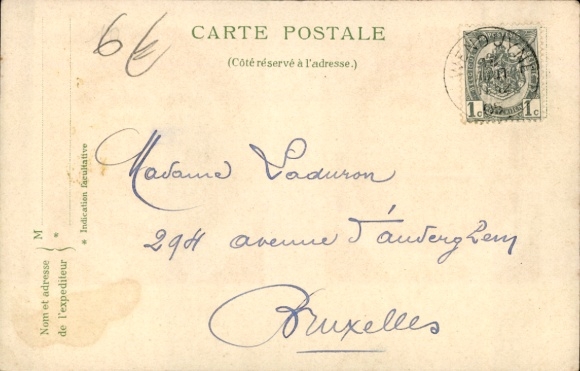 6€
CARTE POSTALE
(Côté réservé à l'adresse.)
WENDUYNE
1c 1c
Madame Laduron
294 avenue d'Auderghem
Bruxelles
Nom et adresse
de l'expediteur
M
*
* Indication facultative